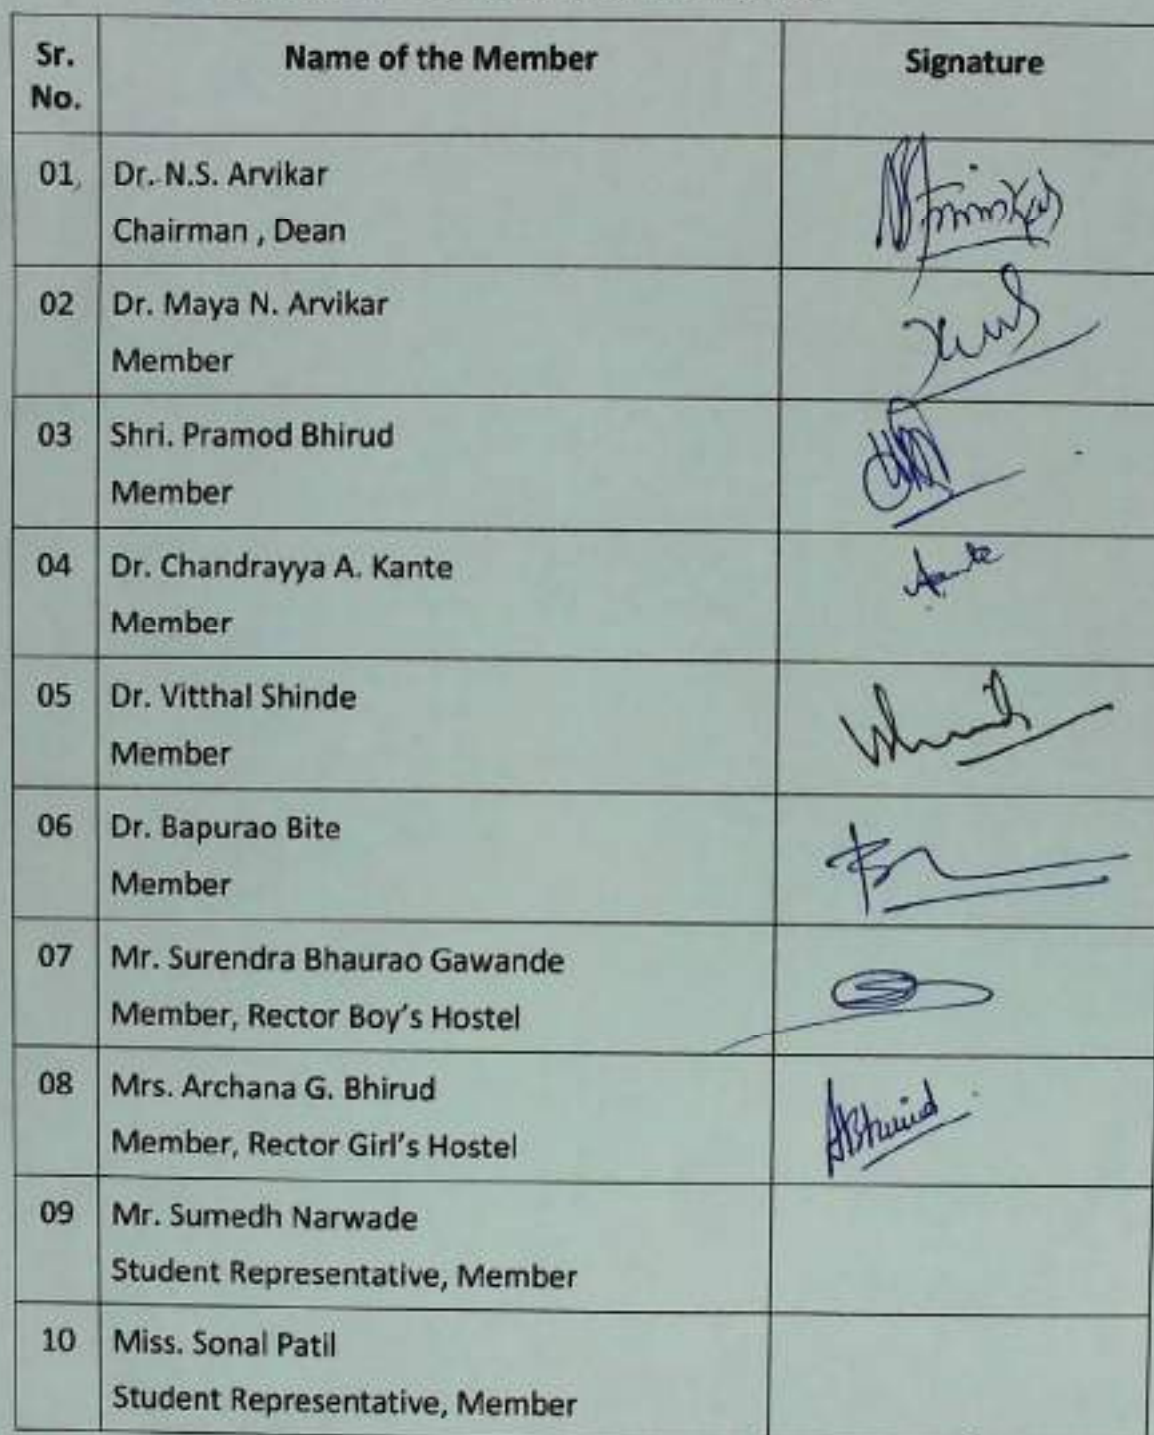 Sr. No. Name of the Member Signature
01, Dr. N.S. Arvikar
Chairman , Dean
02 Dr. Maya N. Arvikar
Member
03 Shri. Pramod Bhirud
Member
04 Dr. Chandrayya A. Kante
Member
05 Dr. Vitthal Shinde
Member
06 Dr. Bapurao Bite
Member
07 Mr. Surendra Bhaurao Gawande
Member, Rector Boy's Hostel
08 Mrs. Archana G. Bhirud
Member, Rector Girl's Hostel
ABhirud
09 Mr. Sumedh Narwade
Student Representative, Member
10 Miss. Sonal Patil
Student Representative, Member